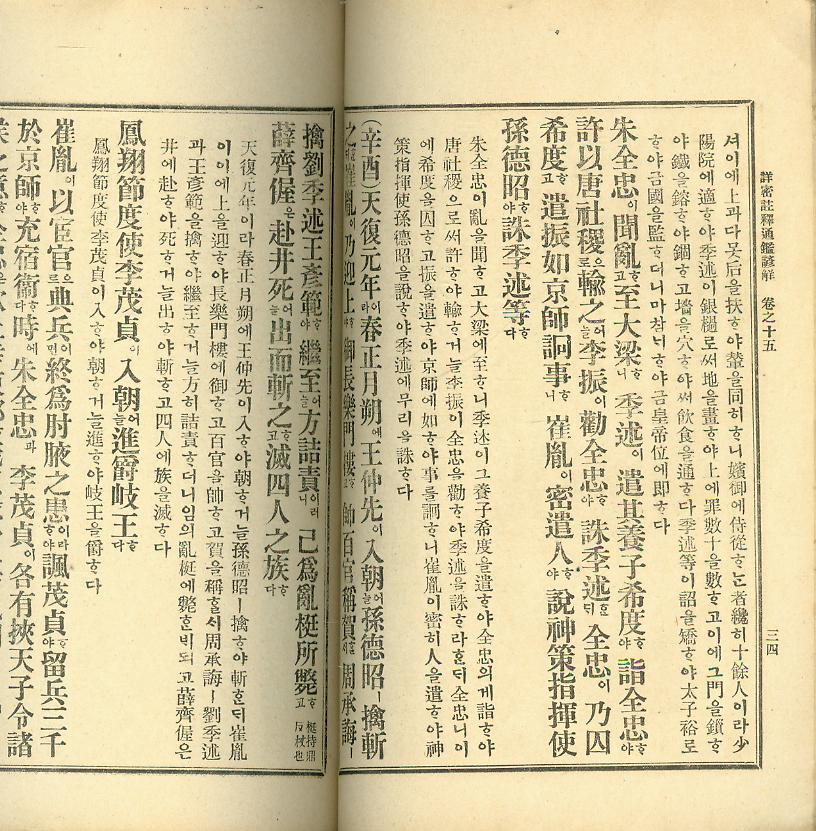 詳密註釋通鑑諺解 卷之十五
三四
셔이에上과다못后을扶ᄒᆞ야輦을同히ᄒᆞ니嬪御에侍從ᄒᆞᄂᆞᆫ者纔히十餘人이라少
陽院에適ᄒᆞ야季述이銀檛로써地을畫ᄒᆞ야上에罪數十을數ᄒᆞ고이에그門을鎖ᄒᆞ
야鐵을鎔ᄒᆞ야錮ᄒᆞ고墻을穴ᄒᆞ야써飮食을通ᄒᆞ다季述等이詔을矯ᄒᆞ야太子裕로
ᄒᆞ야금國을監ᄒᆞ더니마참ᄂᆡᄒᆞ야금皇帝位에即ᄒᆞ다
朱全忠이聞亂ᄒᆞ고至大梁ᄒᆞ니季述이遣其養子希度ᄒᆞ야詣全忠ᄒᆞ야
許以唐社稷으로輸之어ᄂᆞᆯ李振이勸全忠ᄒᆞ야誅季述ᄒᆞᆫᄃᆡ全忠이乃囚
希度ᄒᆞ고遣振如京師ᄒᆞ야詗事ᄒᆞ니崔胤이密遣人ᄒᆞ야說神策指揮使
孫德昭ᄒᆞ야誅季述等ᄒᆞ다
朱全忠이亂을聞ᄒᆞ고大梁에至ᄒᆞ니季述이그養子希度을遣ᄒᆞ야全忠의게詣ᄒᆞ야
唐社稷으로써許ᄒᆞ야輸ᄒᆞ거ᄂᆞᆯ李振이全忠을勸ᄒᆞ야季述을誅ᄒᆞ라ᄒᆞᆫᄃᆡ全忠니이
에希度을囚ᄒᆞ고振을遣ᄒᆞ야京師에如ᄒᆞ야事를詗ᄒᆞ니崔胤이密히人을遣ᄒᆞ야神
策指揮使孫德昭을說ᄒᆞ야季述에무리을誅ᄒᆞ다
(辛酉)天復元年이라春正月朔에王仲先이入朝어ᄂᆞᆯ孫德昭ㅣ擒斬
之ᄒᆞᆫᄃᆡ崔胤이乃迎上ᄒᆞ야御長樂門樓ᄒᆞ고帥百官稱賀ᄒᆞᆯᄉᆡ周承誨ㅣ
擒劉季述王彥範ᄒᆞ야繼至어ᄂᆞᆯ方詰責이러니已爲亂梃所斃ᄒᆞ고 梃待鼎反杖也
薛齊偓은赴井死어ᄂᆞᆯ出而斬之ᄒᆞ고滅四人之族ᄒᆞ다
天復元年이라春正月朔에王仲先이入ᄒᆞ야朝ᄒᆞ거ᄂᆞᆯ孫德昭ㅣ擒ᄒᆞ야斬ᄒᆞᆫᄃᆡ崔胤
이이에上을迎ᄒᆞ야長樂門樓에御ᄒᆞ고百官을帥ᄒᆞ고賀을稱ᄒᆞᆯᄉᆡ周承誨ㅣ劉季述
과王彥範을擒ᄒᆞ야繼至ᄒᆞ거ᄂᆞᆯ方히詰責ᄒᆞ더니임의亂梃에斃ᄒᆞᆫᄇᆡ되고薛齊偓은
井에赴ᄒᆞ야死ᄒᆞ거ᄂᆞᆯ出ᄒᆞ야斬ᄒᆞ고四人에族을滅ᄒᆞ다
鳳翔節度使李茂貞이入朝어ᄂᆞᆯ進爵岐王ᄒᆞ다
鳳翔節度使李茂貞이入ᄒᆞ야朝ᄒᆞ거ᄂᆞᆯ進ᄒᆞ야岐王을爵ᄒᆞ다
崔胤이以宦官으로典兵이면終爲肘腋之患이라ᄒᆞ야諷茂貞ᄒᆞ야留兵三千
於京師ᄒᆞ야充宿衞ᄒᆞ다時에朱全忠과李茂貞이各有挾天子令諸